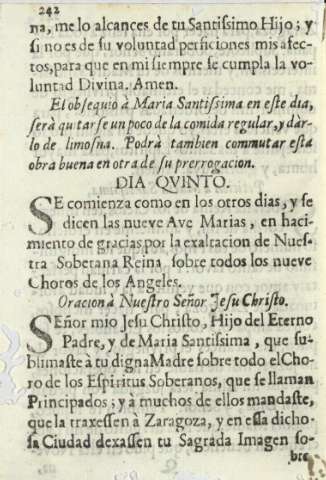 242
na, me lo alcances de tu Santissimo Hijo; y
si no es de su voluntad perficiones mis afec-
tos, para que en mi siempre se cumpla la vo-
luntad Divina. Amen.
El obsequio à Maria Santissima en este dia,
serà quitarse un poco de la comida regular, y dàr-
lo de limosna. Podrà tambien commutar esta
obra buena en otra de su prerrogacion.
DIA QVINTO.
SE comienza como en los otros dias, y se
dicen las nueve Ave Marias, en haci-
miento de gracias por la exaltacion de Nues-
tra Soberana Reina sobre todos los nueve
Choros de los Angeles.
Oracion à Nuestro Señor Jesu Christo.
SEñor mio Jesu Christo, Hijo del Eterno
Padre, y de Maria Santissima, que su-
blimaste à tu digna Madre sobre todo el Cho-
ro de los Espiritus Soberanos, que se llaman
Principados; y à muchos de ellos mandaste,
que la traxessen à Zaragoza, y en essa dicho-
sa Ciudad dexassen tu Sagrada Imagen so-
bre